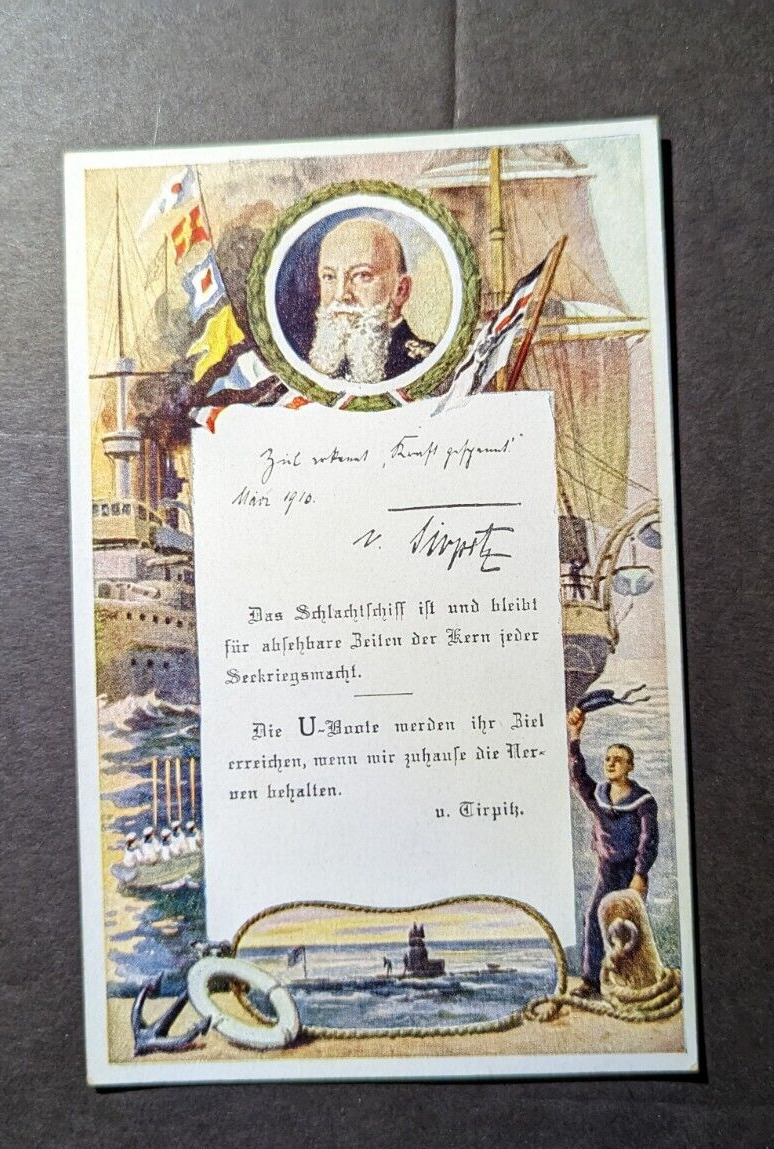 Ziel erkannt, "Kraft gespannt"
März 1910.
v. Tirpitz
Das Schlachtschiff ist und bleibt
für absehbare Zeiten der Kern jeder
Seekriegsmacht.
Die U-Boote werden ihr Ziel
erreichen, wenn wir zuhause die Ner-
ven behalten.
v. Tirpitz.